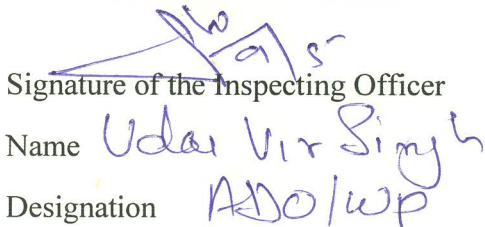 9/5
Signature of the Inspecting Officer
Name Udai Vir Singh
Designation ADO/WP